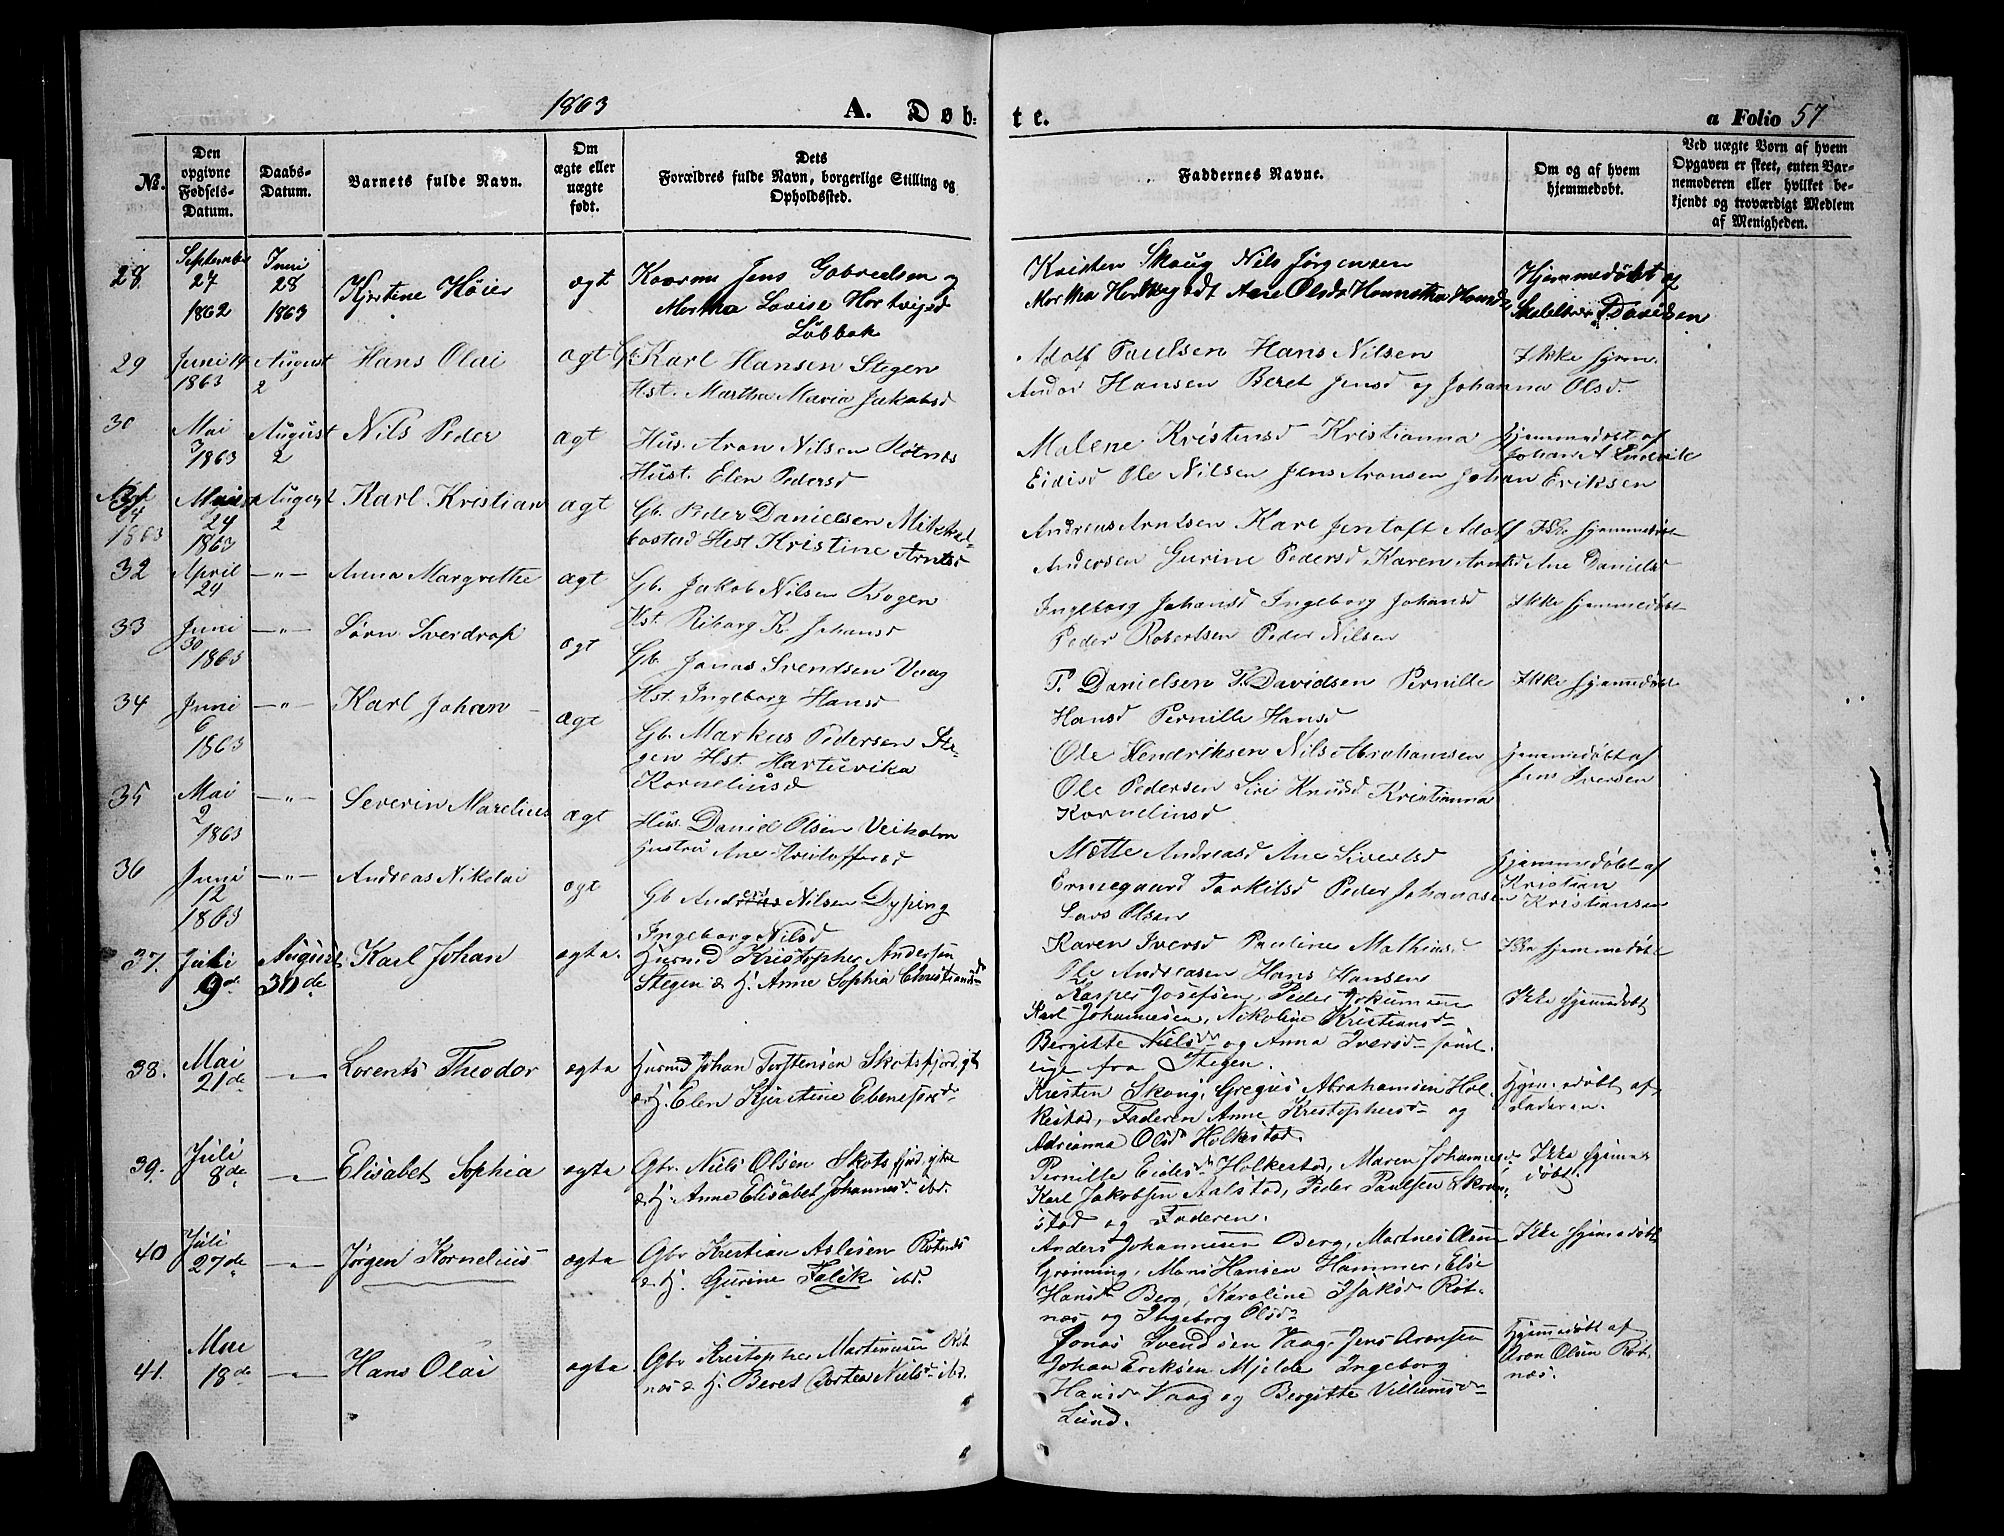 1863
A. Døb-
te.
a Folio 57
No.
Den
opgivne
Fødsels-
Datum.
Daabs-
Datum.
Barnets fulde Navn.
Om
ægte eller
uægte
født.
Dets
Forældres fulde Navn, borgerlige Stilling og
Opholdssted.
Faddernes Navne.
Om og af hvem
hjemmedøbt.
Ved uægte Børn af hvem
Opgaven er skeet, enten Bar-
nemoderen eller hvilket be-
kjendt og troværdigt Medlem
af Menigheden.
28.
September
27
1862
Juni
28
1863
Kjrstine Høier
ægt
Jens Gabrielsen og
Lovise
Løbbak
Kristen Skaug Nils Jørgensen
Hjemmedøbt og
Davidsen
29
Juni 14
1863
August
2
Hans Olai
ægt
Gb. Karl Hansen Stegen
Hst. Martha Maria Jakobsd
Adolf Paulsen Hans Nilsen
Andor Hansen Beret Jensd og Johanna Olsd.
Ikke hjem.
30
Mai
3
1863
August
2
Nils Peder
ægt
Hus. Aron Nilsen Røtnæs
Hust. Elen Pedersd
Malene Kristensd Kristianna
Eidisd Ole Nilsen Jens Aronsen Johan Eriksen
Hjemmedøbt af
Johan A
24
1863
August
2
Karl Kristian
ægt
Gb. Peder Danielsen
bostad Hst Kristine Arntsd
Andreas Arntsen Karl Jentoft Adolf
Andersen Gurine Pedersd Karen Arntsd Ane Danielsd
Ikke hjemmedøbt
32
April
24
—"—
Anna Margrethe
ægt
Gb. Jakob Nilsen Bogen
Hst. Riborg K. Johansd
Ingeborg Johansd Ingeborg Johansd
Peder Robertsen Peder Nilsen
Ikke hjemmedøbt
33
Juni
30
1863
—"—
Sørn Sverdrop
ægt
Gb. Jonas Svendsen Vaag
Hst. Ingeborg Hansd
P. Danielsen T. Davidsen Pernille
Hansd Pernille Hansd
Ikke hjemmedøbt
34
Juni
6
1863
—"—
Karl Johan
ægt
Gb. Markus Pedersen Ste-
gen Hst. Hartuvika
Korneliusd
Ole Hendriksen Nils Abrahamsen
Ole Pedersen Siri Knudsd Kristianna
Kornelinsd
Hjemmedøbt af
Jens Iversen
35
Mai
2
1863
—"—
Severin Marelius
ægt
Hus. Daniel Olsen Veiholm
Hustru Ane Kristoffersd
Mette Andreasd Ane Sivertsd
Ermegaard Torkilsd Peder Johanasen
Lars Olsen
Hjemmedøbt af
Kristian
Kristiansen
36
Juni
12
1863
—"—
Andreas Nikolai
ægt
Gb Nilsen Dyping
Ingeborg Nilsd
Karen Iversd Pauline Mathiasd
Ole Andreasen Hans Hansen
Ikke hjemmedøbt
37.
Juli
9de
August
30de
Karl Johan
ægte.
Husmd Kristopher Andersen
Stegen & H. Anne Sophia Christiansd
Kasper Josefsen, Peder
Karl Johannesen, Nikoline Kristiansd
Bergitte Nielsd og Anna Iversd saml-
lige fra Stegen.
Ikke hjemmedøbt
38.
Mai
21de
—"—
Lorents Theodor
ægte
Husmd Johan Torstensen Skotsfjord
& H. Elen Kjerstine
Kristen Skoug, Gregus Abrahamsen Hol-
kestad, Faderen Anne Kristophersd og
Adrianna Olsd Holkestad.
Hjemmedøbt af
Faderen.
39.
Juli
8de
—"—
Elisabet Sophia
ægte
Gbr. Niels Olsen Skotsfjord
& H. Anne Elisabet Johannesd ibd.
Pernille Eidesd Holkestad, Maren Johannesd
Karl Jakobsen Aalstad, Peder Paulsen
stad og Faderen.
Ikke hjemme-
døbt.
40
Juli
27de
—"—
Jørgen Kornelius
ægte
Gbr Kristian Aslesen Røtnæs
& H. Gurine Falek ibd.
Anders Johannesen Berg, Martnes Olsen
Grønning, Mons Hansen Hammer, Else
Hansd Berg, Karoline Isaksd Røt-
næs og Ingeborg Olsd
Ikke hjemmedøbt
41.
Mai
18de
—"—
Hans Olai
ægte
Gbr Kristopher Martinusen Røt
næs & H. Beret Dortea Nielsd ibd.
Jonas Svendsen Vaag, Jens Aronsen
Johan Eriksen Mjelde Ingeborg
Hansd Vaag og Bergitte Villumsd
Lund.
Hjemmedøbt af
Aron Olsen Røt-
næs.